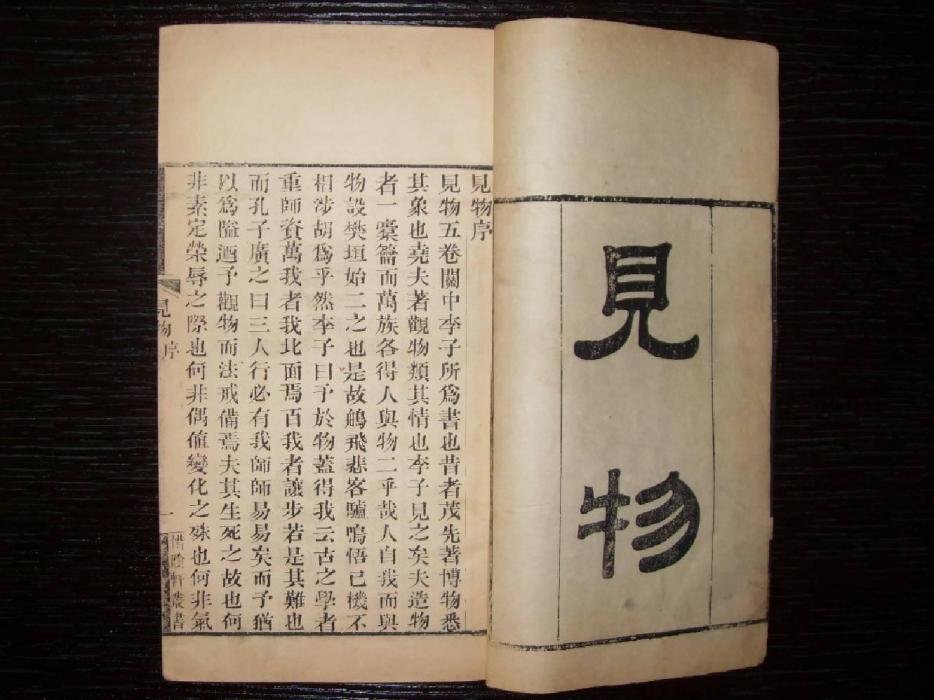 見物
見物序
見物五卷關中李子所爲書也昔者茂先著博物悉
其象也堯夫著觀物類其情也李子見之矣夫造物
者一橐籥而萬族各得人與物二乎哉人自我而與
物設樊垣始二之也是故鵂飛悲客驢鳴悟己機不
相涉胡爲乎然李子曰予於物蓋得我云古之學者
重師資萬我者我北面焉百我者讓步若是其難也
而孔子廣之曰三人行必有我師師易易矣而予猶
以爲隘迺予觀物而法戒備焉夫其生死之故也何
非素定榮辱之際也何非偶値變化之殊也何非氣
見物序
一
惜陰軒叢書